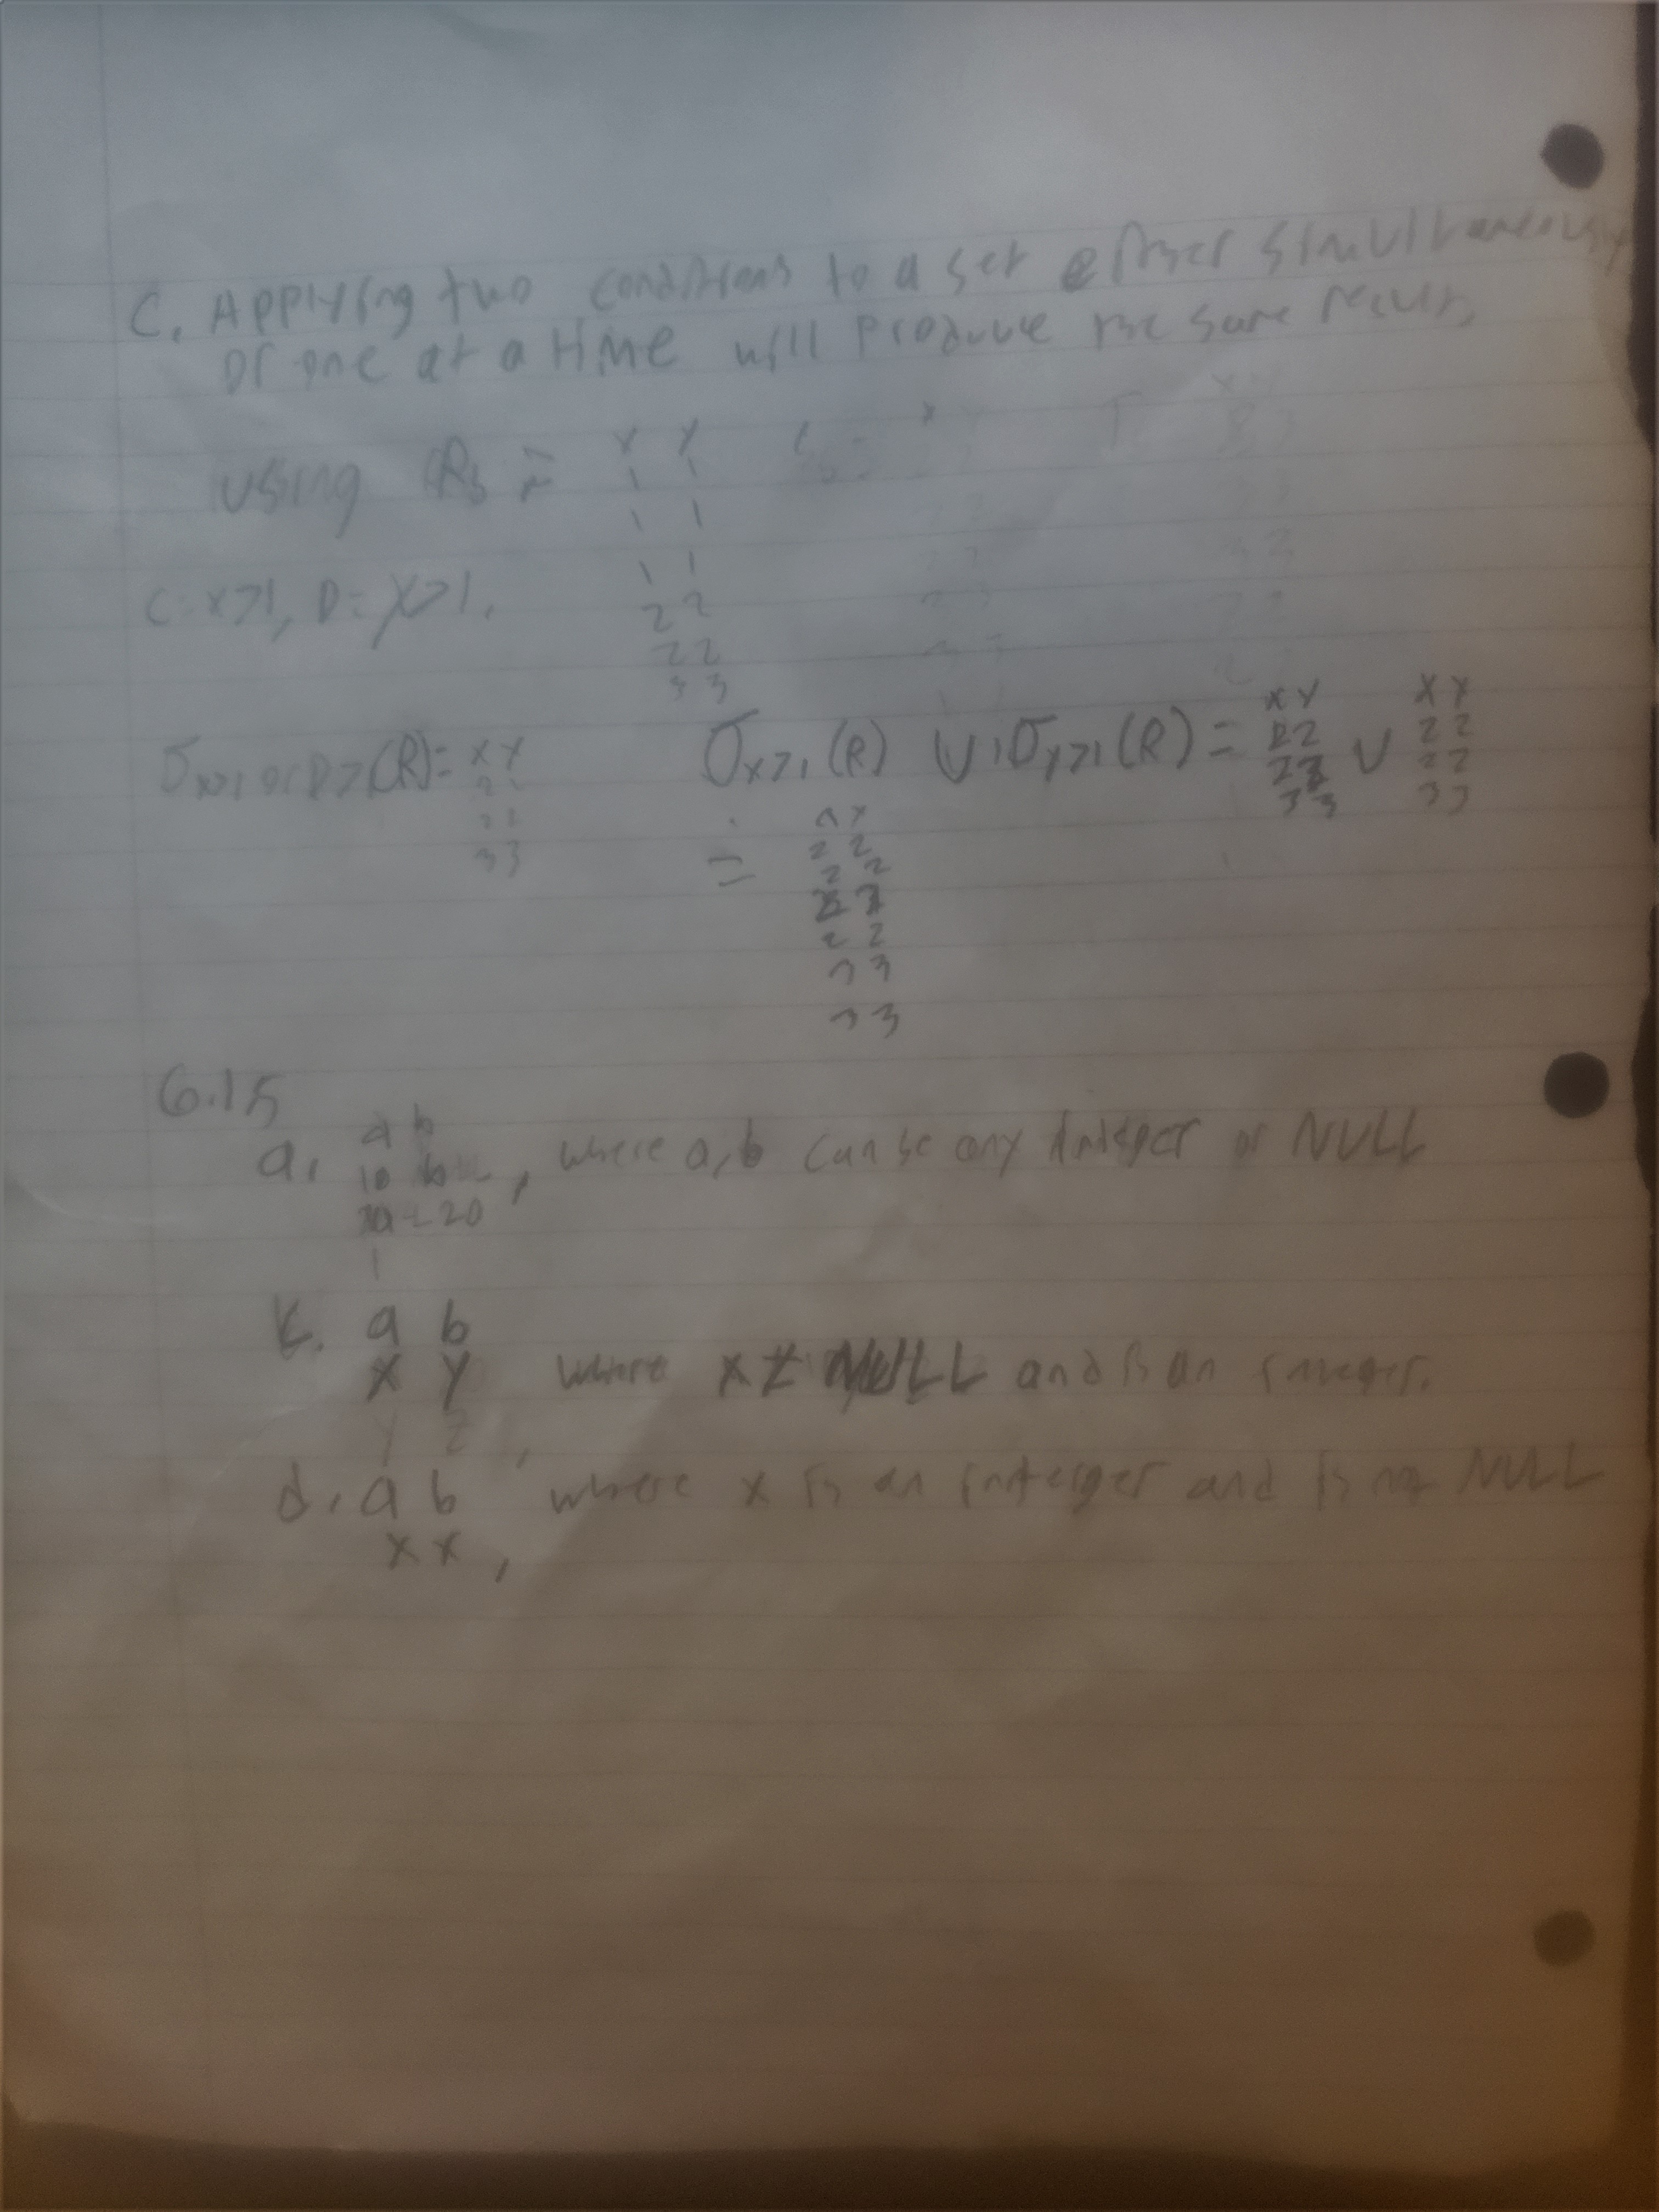 C. Applying two conditions to a set either simultaneously
or one at a time will produce the same result.
using R =
X Y
1 1
1 1
1 1
2 2
2 2
3 3
C: x>1, D= y>1.
σx>1 or (R)= X Y
3 3
σx>1 (R) ∪ σy>1 (R) = X Y ∪ X Y
2 2 2 2
2 2 2 2
3 3 3 3
=
2 2
2 2
2 2
2 2
3 3
3 3
6.15
a. a b
10 b , where a,b can be any integer or NULL
a 20
c. a b
x y where x ≠ NULL and is an integer.
y z ,
d. a b where x is an interger and is not NULL
x x ,